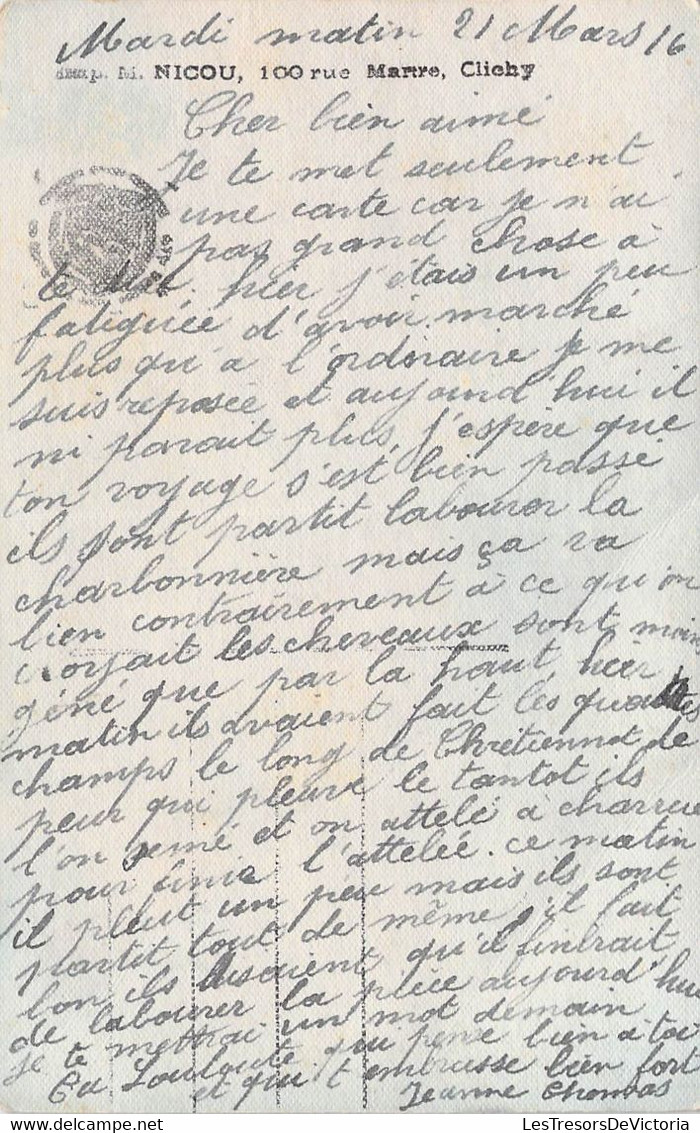 Mardi matin 21 Mars 16
Imp. M. NICOU, 100 rue Martre, Clichy
Cher bien aimé
Je te met seulement
une carte car je n'ai
pas grand chose à
te hier j'étais un peu
fatiguée d'avoir marché
plus qu'à l'ordinaire je me
suis reposée et aujourd'hui il
ni parait plus, j'espère que
ton voyage s'est bien passé
ils sont partit labourer la
charbonnière mais ça va
bien contrairement à ce qu'on
croyait les cheveaux sont moin
géné que par la haut, hier
matin ils avaient fait les quatre
champs le long de Chretiennot de
peur qui pleuve le tantot ils
l'on semé et on attelé à charrue
pour finir l'attelée. ce matin
il pleut un peu mais ils sont
partit tout de même, il fait
bon ils disaient qu'il finirait
de labourer la pièce aujourd'hui
je te mettrai un mot demain
Ta Louloute qui pense bien à toi
et qui t'embrasse bien fort
Jeanne Thomas
LesTresorsDeVictoria